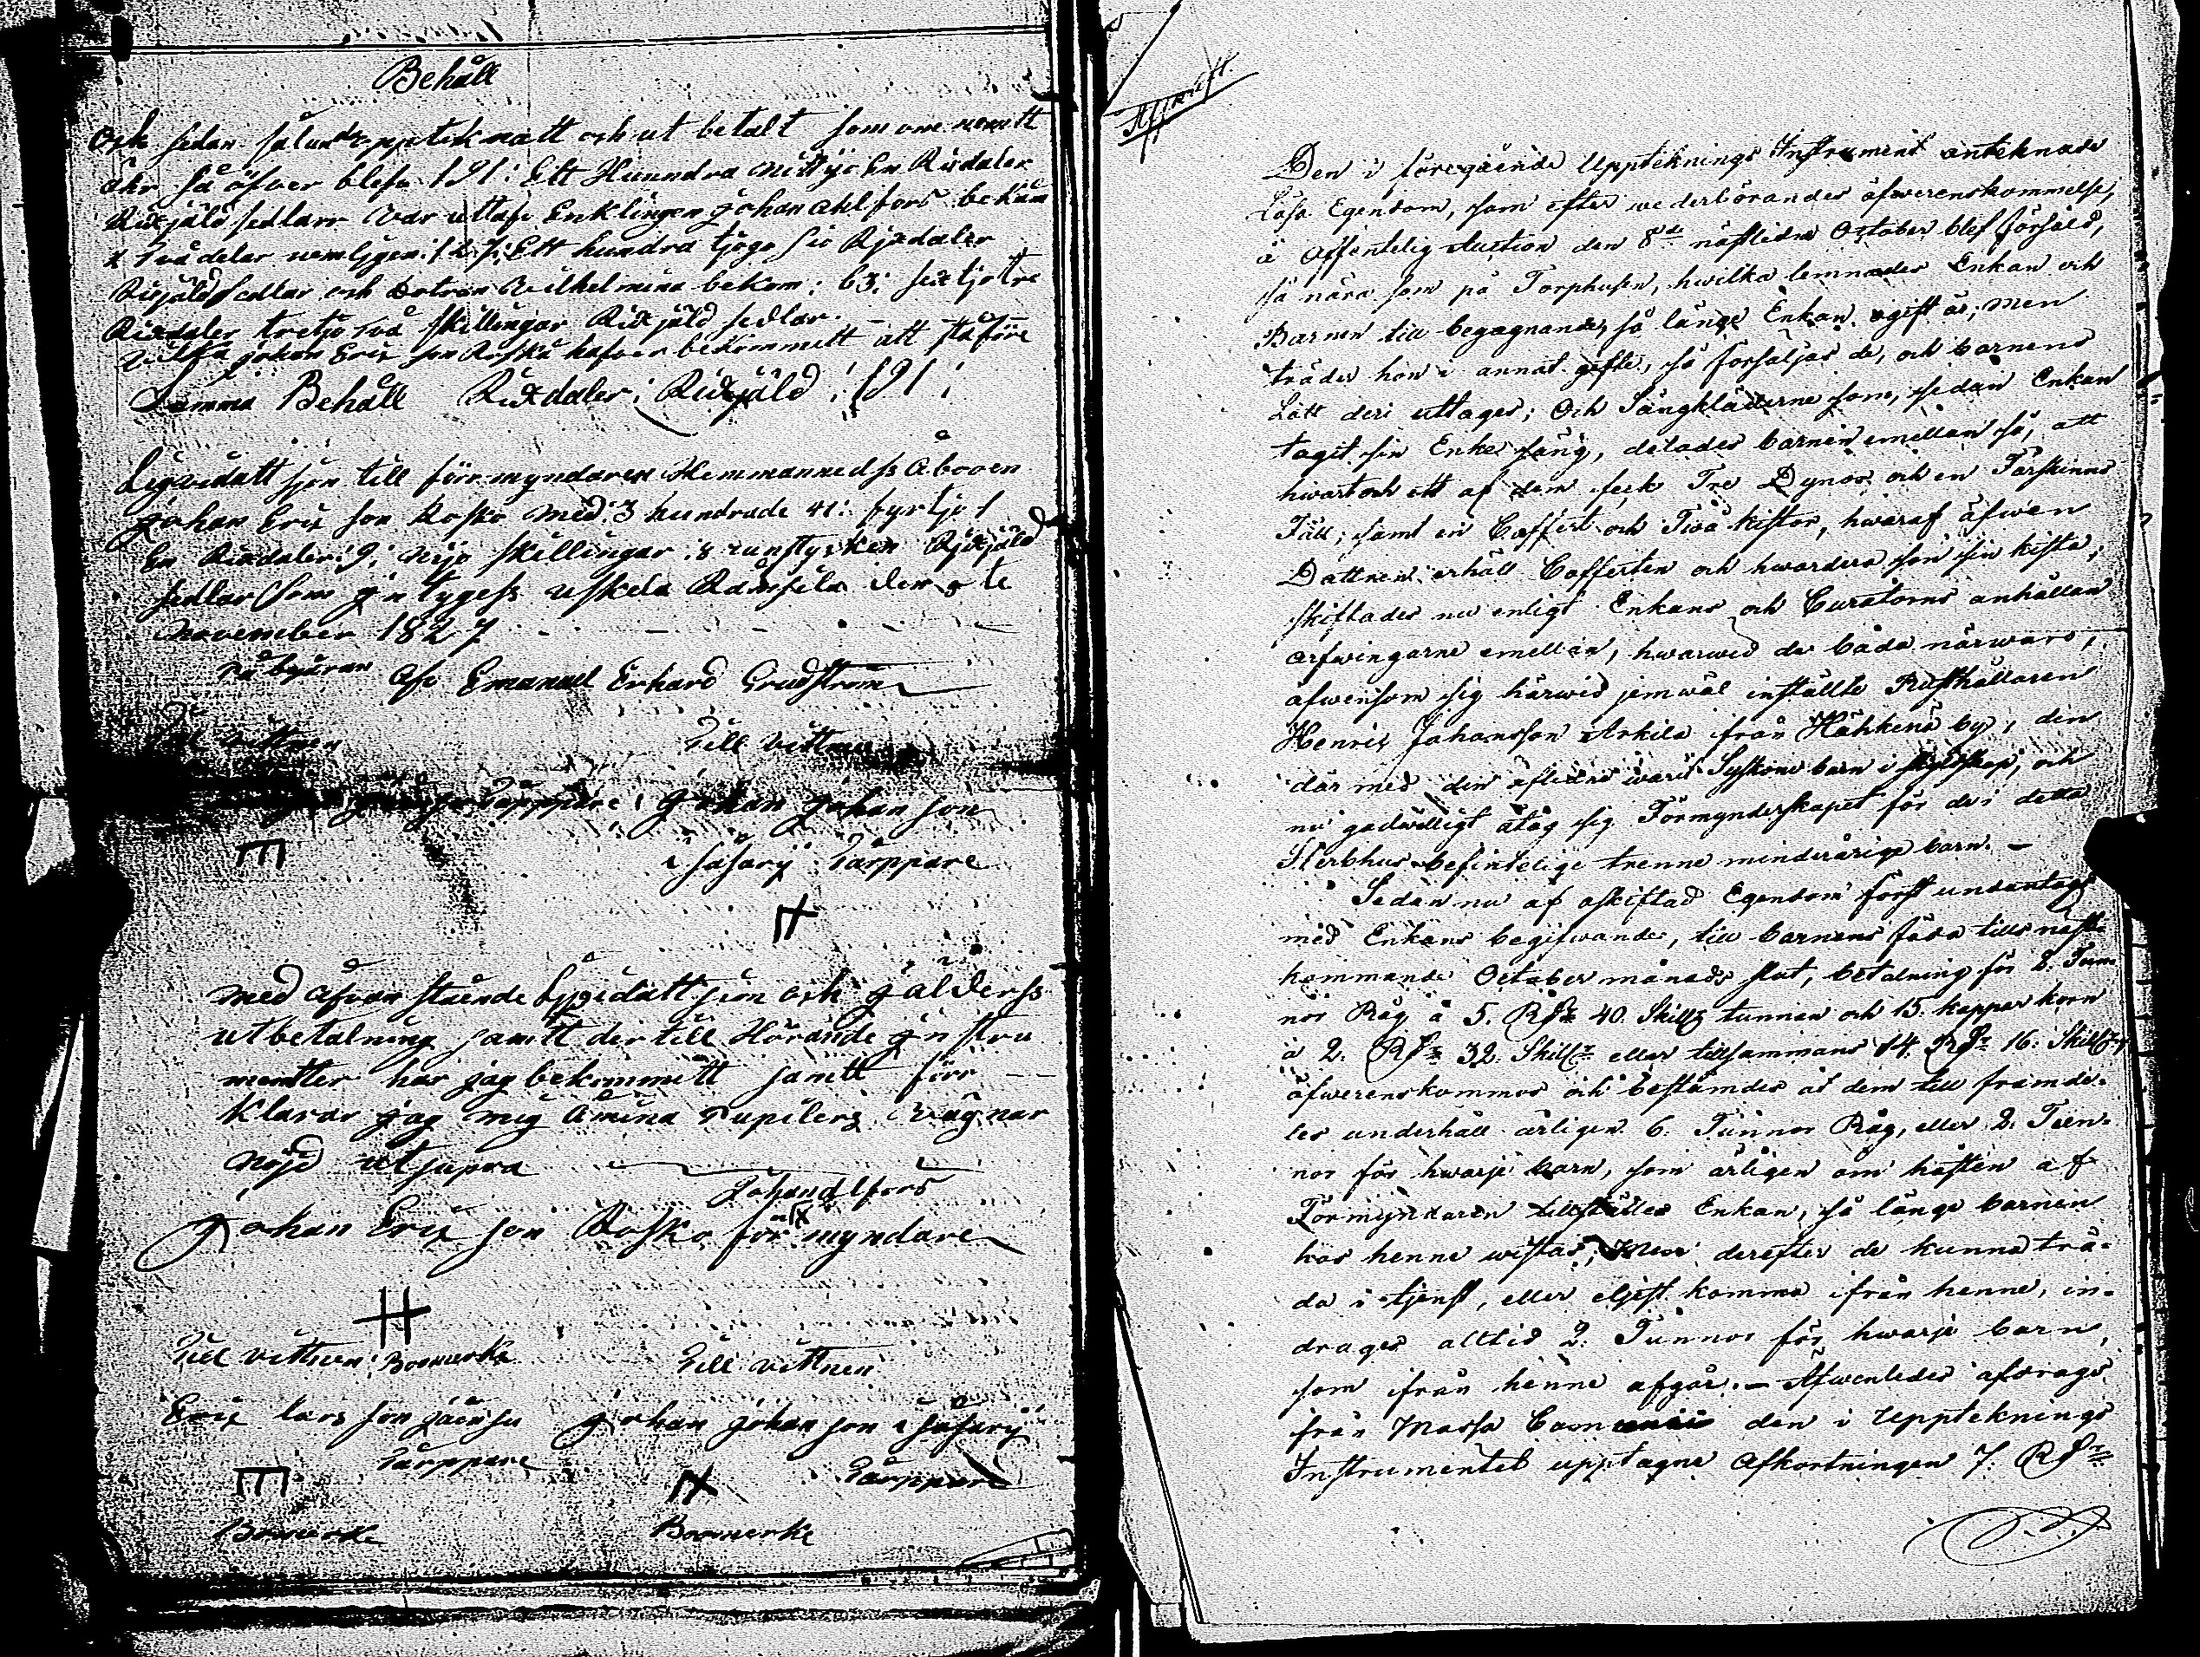 Behåll
Och sedan sålunda uppteknatt och ut betalt som ome nemtt
ähr så öfver blefv 191: Ett Hunndra nittijo En Rixdaler
Rixjäld sedlarr var uttafv Enklingen Johan Ahlfors bekåm
2 två delar nemligen: 127: Ett hundra tjogo siö Rixdaler
Rixjäld sedlar och dotren Wilhelmina bekom: 63: sextjo tre
Rixdaler tretjo två skillingar Rixjäld sedlar.
vilka johan Erix son Rosko hafver bekommett att stå före
Samma Behåll Rixdaler: Rixjäld: 191:
Liqvidatt sjon till förr myndaren Hemmannedss Åbooen
Johan Erix son Rosko med: 3 hundrade 41: fyrtjo 1
En Rixdaler: 9: nijo skillingar: 8 runstycken Rixjäld
sedlar som jn tygess uskela Rämsilä den 8 te
November 1827
På begäran af Emanuel Erhard Grudström
Till vittnen Till vittnen
Tårppare Johan Johan son
i sasarÿ Tårppare
Med ofvan stående liqvidatt sion och gälderss
utbetalning samtt der till Hörande jn stru
mentter har jag bekommitt samtt förr
klarar jag mig å mina Pupilers vägnar
nöjd ut supra
Johan Alfors
Johan Erix son Rosko för myndare
Till vittnen: Bomerke Till vittnen
Erix lars son Johan Johan son i sasarÿ
Tårppare Tårppare
Bomerke Bomerke
Afskrift.
Den i föregående Uppteknings Instrument anteknade
Lösa Egendom, som efter vederbörandes öfwerenskommelse,
å offentelig Auction den 8de nästledne October blef försåld,
så nära som på Torphusen, hwilka lemnades Enkan och
Barnen till begagnande, så länge Enkan ogift är; men
träder hon i annat gifte, så försäljas de, och barnens
Lått deri uttages; Och Sängkläderne som, sedan Enkan
tagit sin Enke säng, delades barnen emellan så, att
hwart och ett af dem feck Tre Dynor och en Fårskinns
Fäll; samt en Coffert och Två kistor, hwaraf äfwen
Dattren erhöll Cofferten och hwardera son sin kista,
skiftades nu enligt Enkans och Curatorns anhållan
arfwingarne emellan, hwarwid de båda närwaro,
äfwensom sig härwid jemwäl inställte Rusthållaren
Henrix Johansson Arkila från Hähkenä by, den
där med den aflidne warit Syskone barn i skyldskap, och
nu godwilligt åtog sig Förmynderskapet för de i detta
Sterbhus befintelige trenne minderårige barn. —
Sedan nu af oskiftad Egendom först undantagits
med Enkans begifwande, till barnens föda tills näst-
kommande October månads slut, betalning för 2. Tun-
nor Råg à 5. Rdr 40. Skillg tunnan och 15. kappar korn
à 2. Rdr 32. Skillgr eller tillsammans 14. Rdr 16. Skillgr,
öfwerenskommos och bestämdes åt dem till framde-
les underhåll årligen 6. Tunnor Råg, eller 2. Tun-
nor för hwarje barn, som årligen om hösten af
Förmyndaren tillställes Enkan, så länge barnen
hos henne wistas; Men derefter de kunna trä-
da i tjenst, eller eljest komma ifrån henne, in-
drages alltid 2. Tunnor för hwarje barn,
som ifrån henne afgår. — Äfwenledes afdrages
från Massa Bonorum den i Uppteknings
Instrumentet upptagne Afkortningen 7. Rdr